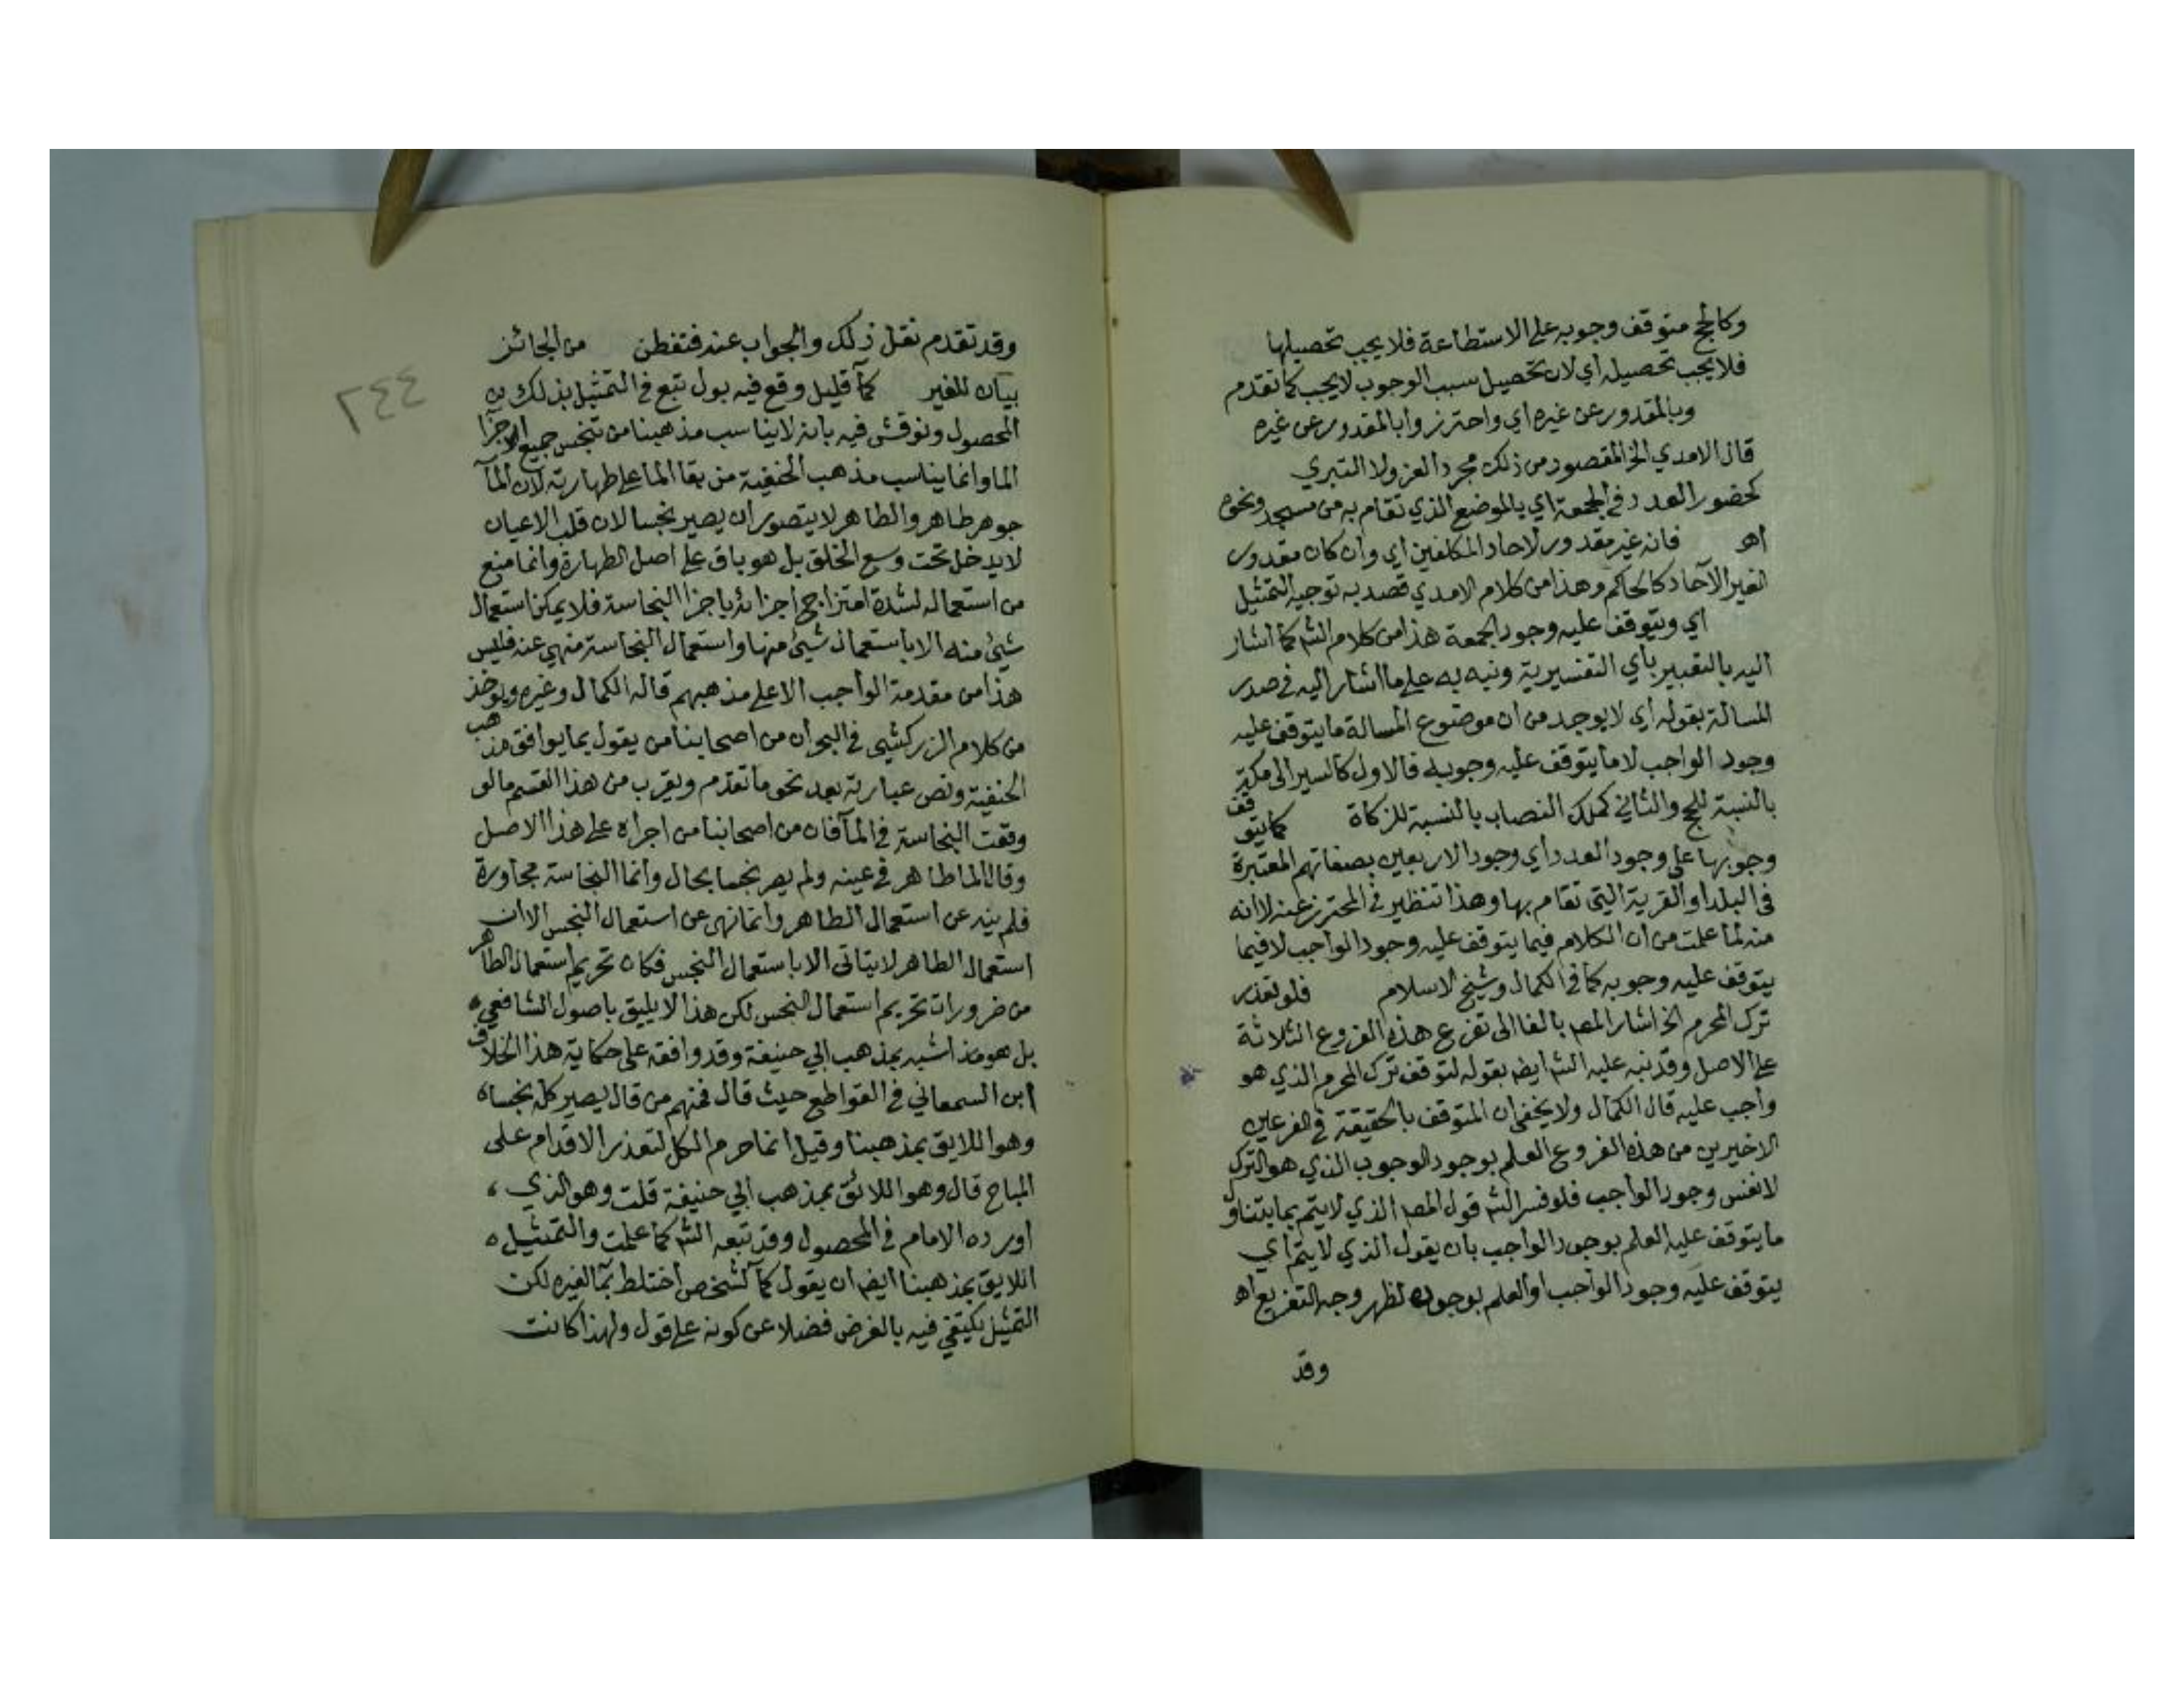 وكالحج متوقف وجوبه على الاستطاعة فلا يجب تحصيلها
فلا يجب تحصيله اي لان تحصيل سبب الوجوب لا يجب كما تقدم
وبالمقدور عن غيره اي واحترزوا بالمقدور عن غيره
قال الامدي الخ المقصود من ذلك مجرد العزو لا التبري
كحضور العدد في الجمعة اي بالموضع الذي تقام به من مسجد ونحوه
اهـ فانه غير مقدور لاحاد المكلفين اي وان كان مقدور
لغير الآحاد كالحاكم وهذا من كلام الامدي قصد به توجيه التمثيل
اي ويتوقف عليه وجود الجمعة هذا من كلام الش كما اشار
اليه بالتعبير بأي التفسيرية ونبه به على ما اشار اليه في صدر
المسالة بقوله اي لا يوجد من ان موضوع المسالة ما يتوقف عليه
وجود الواجب لا ما يتوقف عليه وجوبه فالاول كالسير الى مكة
بالنسبة للحج والثاني كملك النصاب بالنسبة للزكاة كما يتوقف
وجوبها على وجود العدد اي وجود الاربعين بصفاتهم المعتبرة
في البلد او القرية التي تقام بها وهذا تنظير في المحترز عنه لا انه
منه لما علمت من ان الكلام فيما يتوقف عليه وجود الواجب لا فيما
يتوقف عليه وجوبه كما في الكمال وشيخ الاسلام فلو تعذر
ترك المحرم الخ اشار المص بالفا الى تفرع هذه الفروع الثلاثة
على الاصل وقد نبه عليه الش ايض بقوله لتوقف ترك المحرم الذي هو
واجب عليه قال الكمال ولا يخفى ان المتوقف بالحقيقة في الفرعين
الاخيرين من هذه الفروع العلم بوجود الوجوب الذي هو الترك
لا نفس وجود الواجب فلو فسر الش قول المص الذي لا يتم بما يتناول
ما يتوقف عليه العلم بوجود الواجب بان يقول الذي لا يتم اي
يتوقف عليه وجود الواجب او العلم بوجوده لظهر وجه التفريع اهـ
وقد
٢٤٤
وقد تقدم نقل ذلك والجواب عنه فتفطن من الجائز
بيان للغير كمآ قليل وقع فيه بول تبع في التمثيل بذلك
المحصول ونوقش فيه بانه لا يناسب مذهبنا من تنجس جميع الاجزآ
الما وانما يناسب مذهب الحنفية من بقا الما على طهارته لان المآ
جوهر طاهر والطاهر لا يتصور ان يصير نجسا لان قلب الاعيان
لا يدخل تحت وسع الخلق بل هو باق على اصل الطهارة وانما منع
من استعماله لشدة امتزاج اجزائه باجزا النجاسة فلا يمكن استعمال
شيئ منه الا باستعمال شيئ منها واستعمال النجاسة منهي عنه فليس
هذا من مقدمة الواجب الا على مذهبهم قاله الكمال وغيره ويوخذ
من كلام الزركشي في البحر ان من اصحابنا من يقول بما يوافق مذهب
الحنفية ونص عبارته بعد نحو ما تقدم ويقرب من هذا القسم ما لو
وقعت النجاسة في المآ فان من اصحابنا من اجراه على هذا الاصل
وقال الما طاهر في عينه ولم يصر نجسا بحال وانما النجاسة مجاورة
فلم ينه عن استعمال الطاهر وانما نهى عن استعمال النجس الا ان
استعمال الطاهر لا يتاتى الا باستعمال النجس فكان تحريم استعمال الطاهر
من ضرورات تحريم استعمال النجس لكن هذا لا يليق باصول الشافعي
بل هو اشبه بمذهب ابي حنيفة وقد وافقه على حكاية هذا الخلاف
ابن السمعاني في القواطع حيث قال فمنهم من قال يصير كله نجسا
وهو اللايق بمذهبنا وقيل انما حرم الكل لتعذر الاقدام على
المباح قال وهو اللائق بمذهب ابي حنيفة قلت وهو الذي
اورده الامام في المحصول وقد تبعه الش كما علمت والتمثيل
اللايق بمذهبنا ايض ان يقول كمآ لشخص اختلط بمآ لغيره لكن
التمثيل يكتفي فيه بالفرض فضلا عن كونه على قول ولهذا كانت